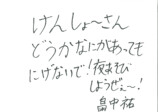 けんしょーさん
どうかなにがあっても
にげないで！夜あそび
しようぜぇ〜！
畠中祐